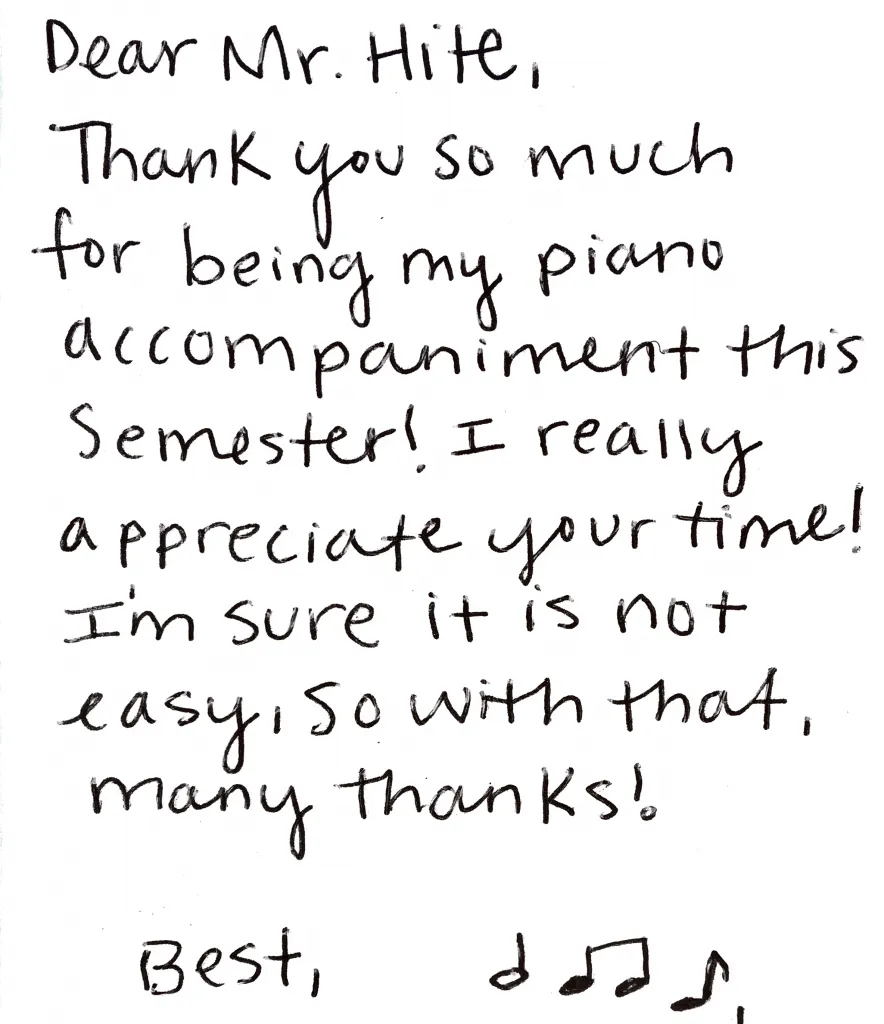 Dear Mr. Hite,
Thank you so much
for being my piano
accompaniment this
Semester! I really
appreciate your time!
I'm sure it is not
easy, so with that,
many thanks!
Best,